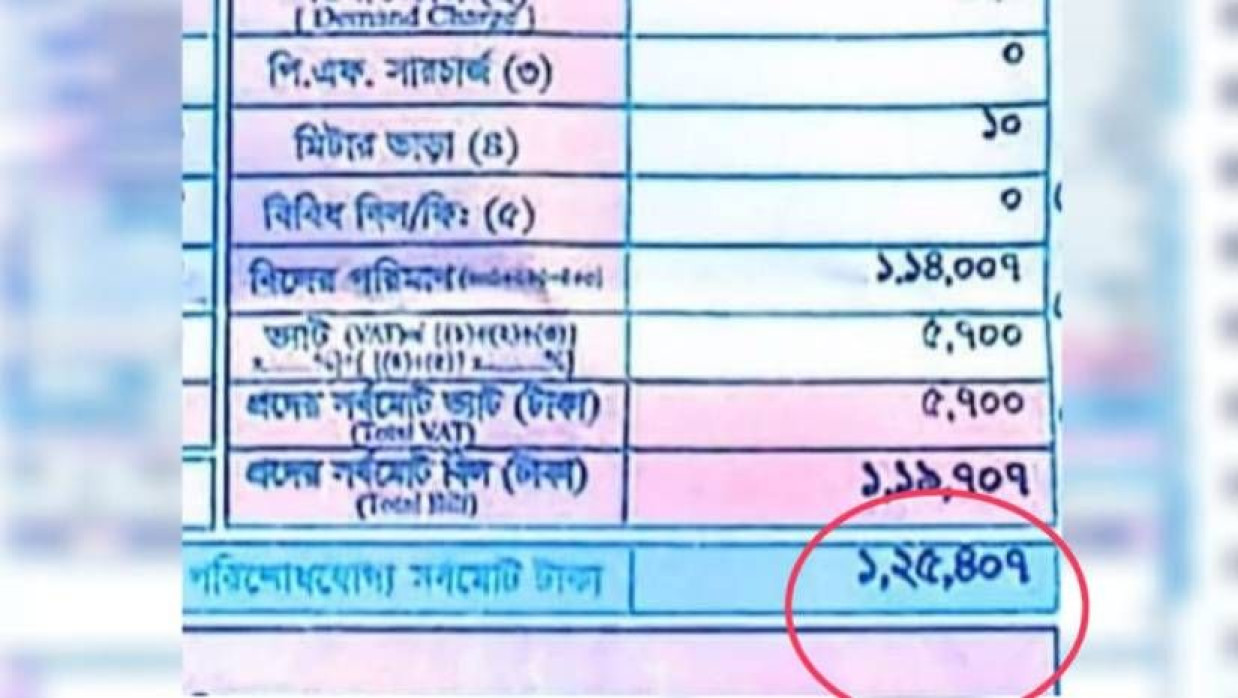 ( Demand Charge )
পি.এফ. সারচার্জ (৩) ০
মিটার ভাড়া (৪) ১০
বিবিধ বিল/ফিঃ (৫) ০
বিলের পরিমাণ ১,১৪,০০৭
ভ্যাট (VAT)= [(১)+(২)+(৩)] ৫,৭০০
x.........%]+[ [(৪)+(৫)] x.........%]
প্রদেয় সর্বমোট ভ্যাট (টাকা) ৫,৭০০
(Total VAT)
প্রদেয় সর্বমোট বিল (টাকা) ১,১৯,৭০৭
(Total Bill)
পরিশোধযোগ্য সর্বমোট টাকা ১,২৫,৪০৭